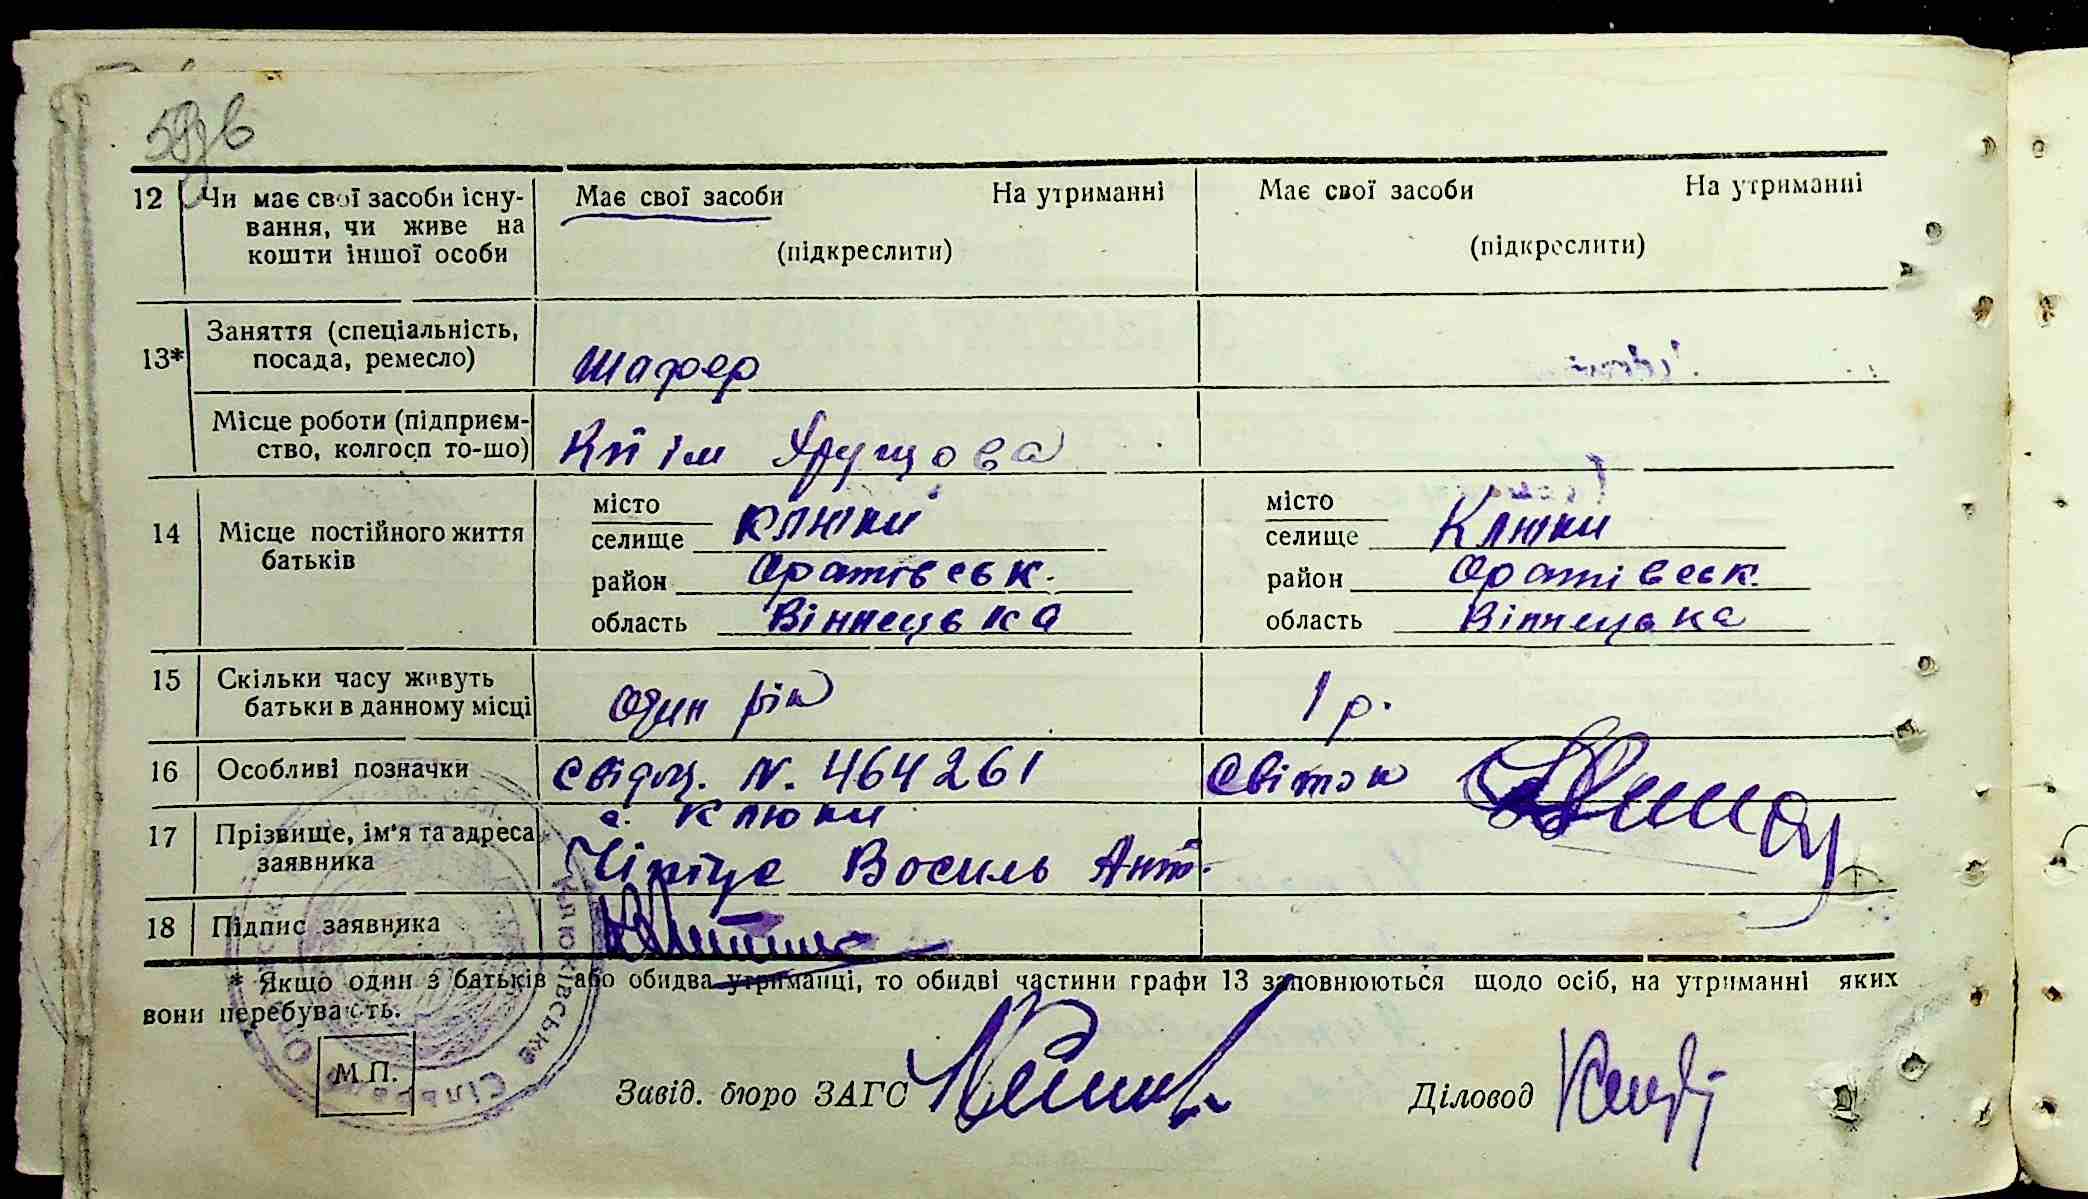 12 Чи має свої засоби існу- Має свої засоби На утриманні Має свої засоби На утриманні
вання, чи живе на
кошти іншої особи (підкреслити) (підкреслити)
13* Заняття (спеціальність,
посада, ремесло) Шофер
Місце роботи (підприєм-
ство, колгосп то-що) К-п ім Хрущова
14 Місце постійного життя
батьків
місто
селище Клюки
район Оратівськ.
область Вінницька
місто
селище Клюки
район Оратівськ.
область Вінницька
15 Скільки часу живуть
батьки в данному місці один рік 1 р.
16 Особливі позначки Свідоц. N. 464261
17 Прізвище, ім'я та адреса
заявника с. Клюки
Василь Ант.
18 Підпис заявника
* Якщо один з батьків або обидва утриманці, то обидві частини графи 13 заповнюються щодо осіб, на утриманні яких
вони перебувають.
М.П. Завід. бюро ЗАГС Діловод